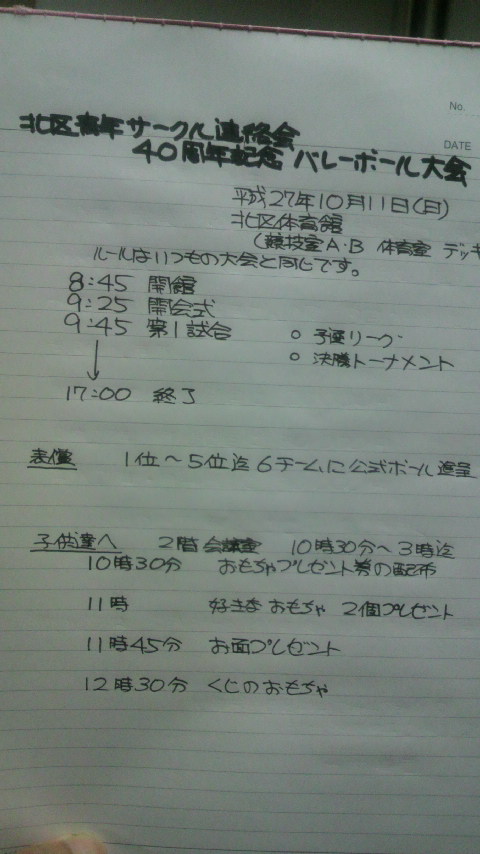 No.
DATE
北区青年サークル連絡会
40周年記念 バレーボール大会
平成27年10月11日(月)
北区体育館
(競技室A・B 体育室 デッキ
ルールはいつもの大会と同じです。
8:45 開館
9:25 開会式
9:45 第1試合 ○ 予選リーグ
↓ ○ 決勝トーナメント
17:00 終了
表彰 1位〜5位迄6チームに公式ボール進呈
子供達へ 2階会議室 10時30分〜3時迄
10時30分 おもちゃプレゼント券の配布
11時 好きなおもちゃ 2個プレゼント
11時45分 お面プレゼント
12時30分 くじのおもちゃ